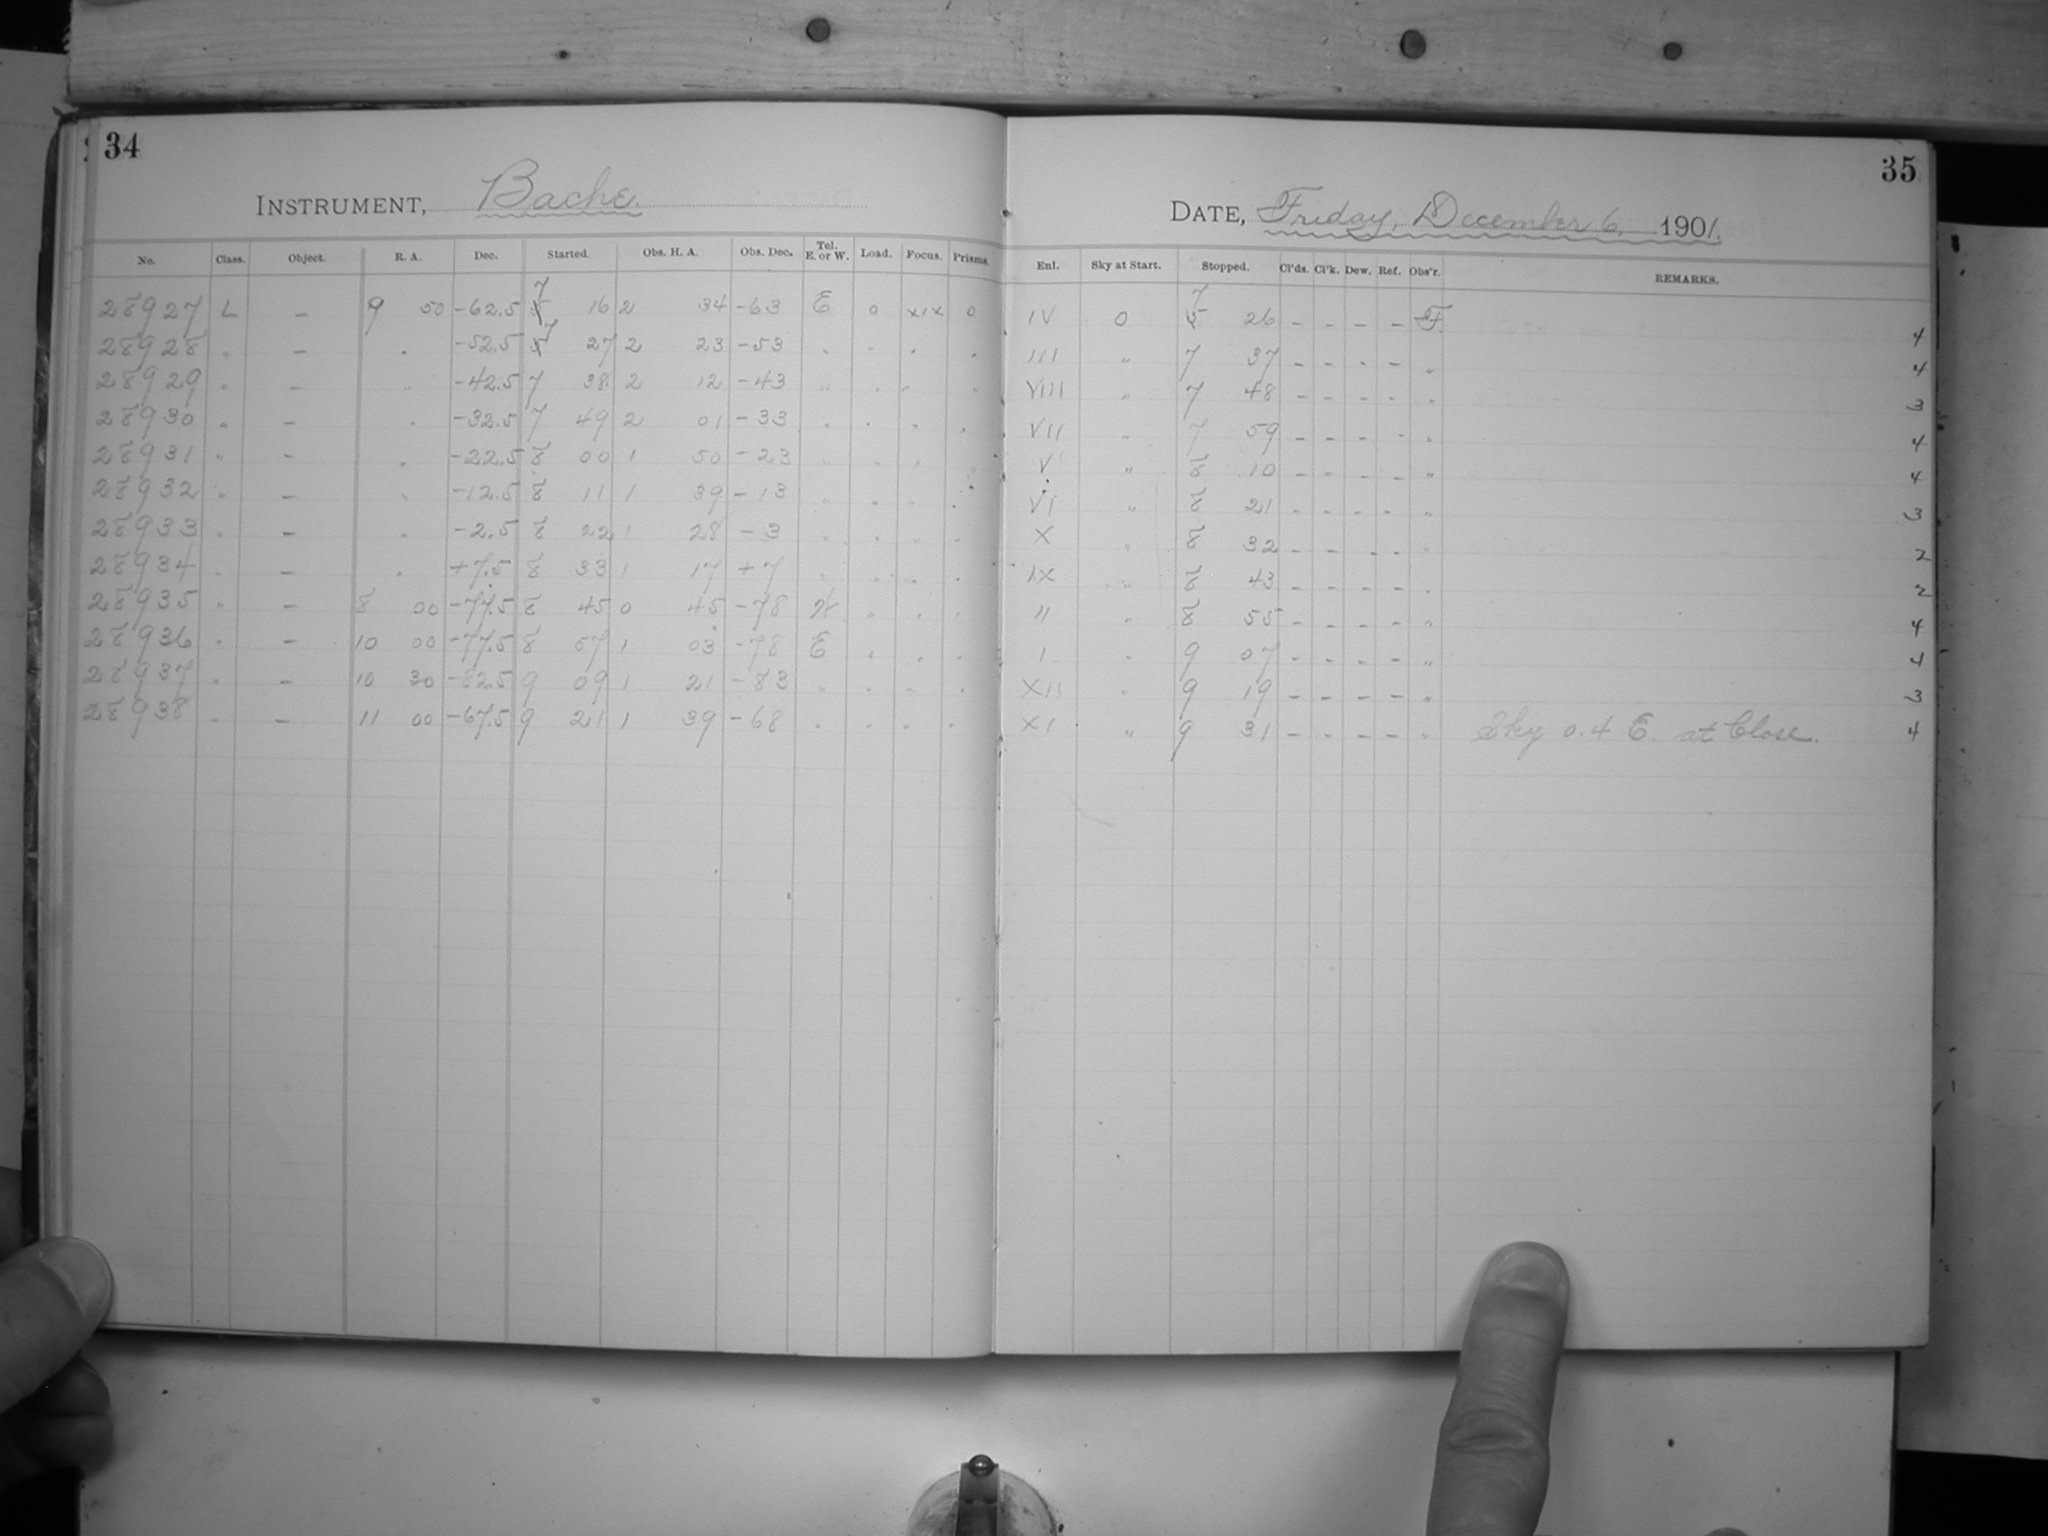 34
INSTRUMENT, Bache.
No. Class. Object. R. A. Dec. Started. Obs. H. A. Obs. Dec. Tel. E. or W. Load. Focus. Prisms.
28927 L – 9 50 -62.5 7 16 2 34 -63 E 0 XIX 0
28928 " – " -52.5 7 27 2 23 -53 " " " "
28929 " – " -42.5 7 38 2 12 -43 " " " "
28930 " – " -32.5 7 49 2 01 -33 " " " "
28931 " – " -22.5 8 00 1 50 -23 " " " "
28932 " – " -12.5 8 11 1 39 -13 " " " "
28933 " – " -2.5 8 22 1 28 -3 " " " "
28934 " – " +7.5 8 33 1 17 +7 " " " "
28935 " – 8 00 -77.5 8 45 0 45 -78 W " " "
28936 " – 10 00 -77.5 8 57 1 03 -78 E " " "
28937 " – 10 30 -82.5 9 09 1 21 -83 " " " "
28938 " – 11 00 -67.5 9 21 1 39 -68 " " " "
35
DATE, Friday, December 6, 1901.
Enl. Sky at Start. Stopped. Cl'ds. Cl'k. Dew. Ref. Obs'r. REMARKS.
IV 0 7 26 – – – – F. 4
III " 7 37 – – – – " 4
VIII " 7 48 – – – – " 3
VII " 7 59 – – – – " 4
V " 8 10 – – – – " 4
VI " 8 21 – – – – " 3
X " 8 32 – – – – " 2
IX " 8 43 – – – – " 2
II " 8 55 – – – – " 4
I " 9 07 – – – – " 4
XII " 9 19 – – – – " 3
XI " 9 31 – – – – " Sky 0.4 E. at Close. 4